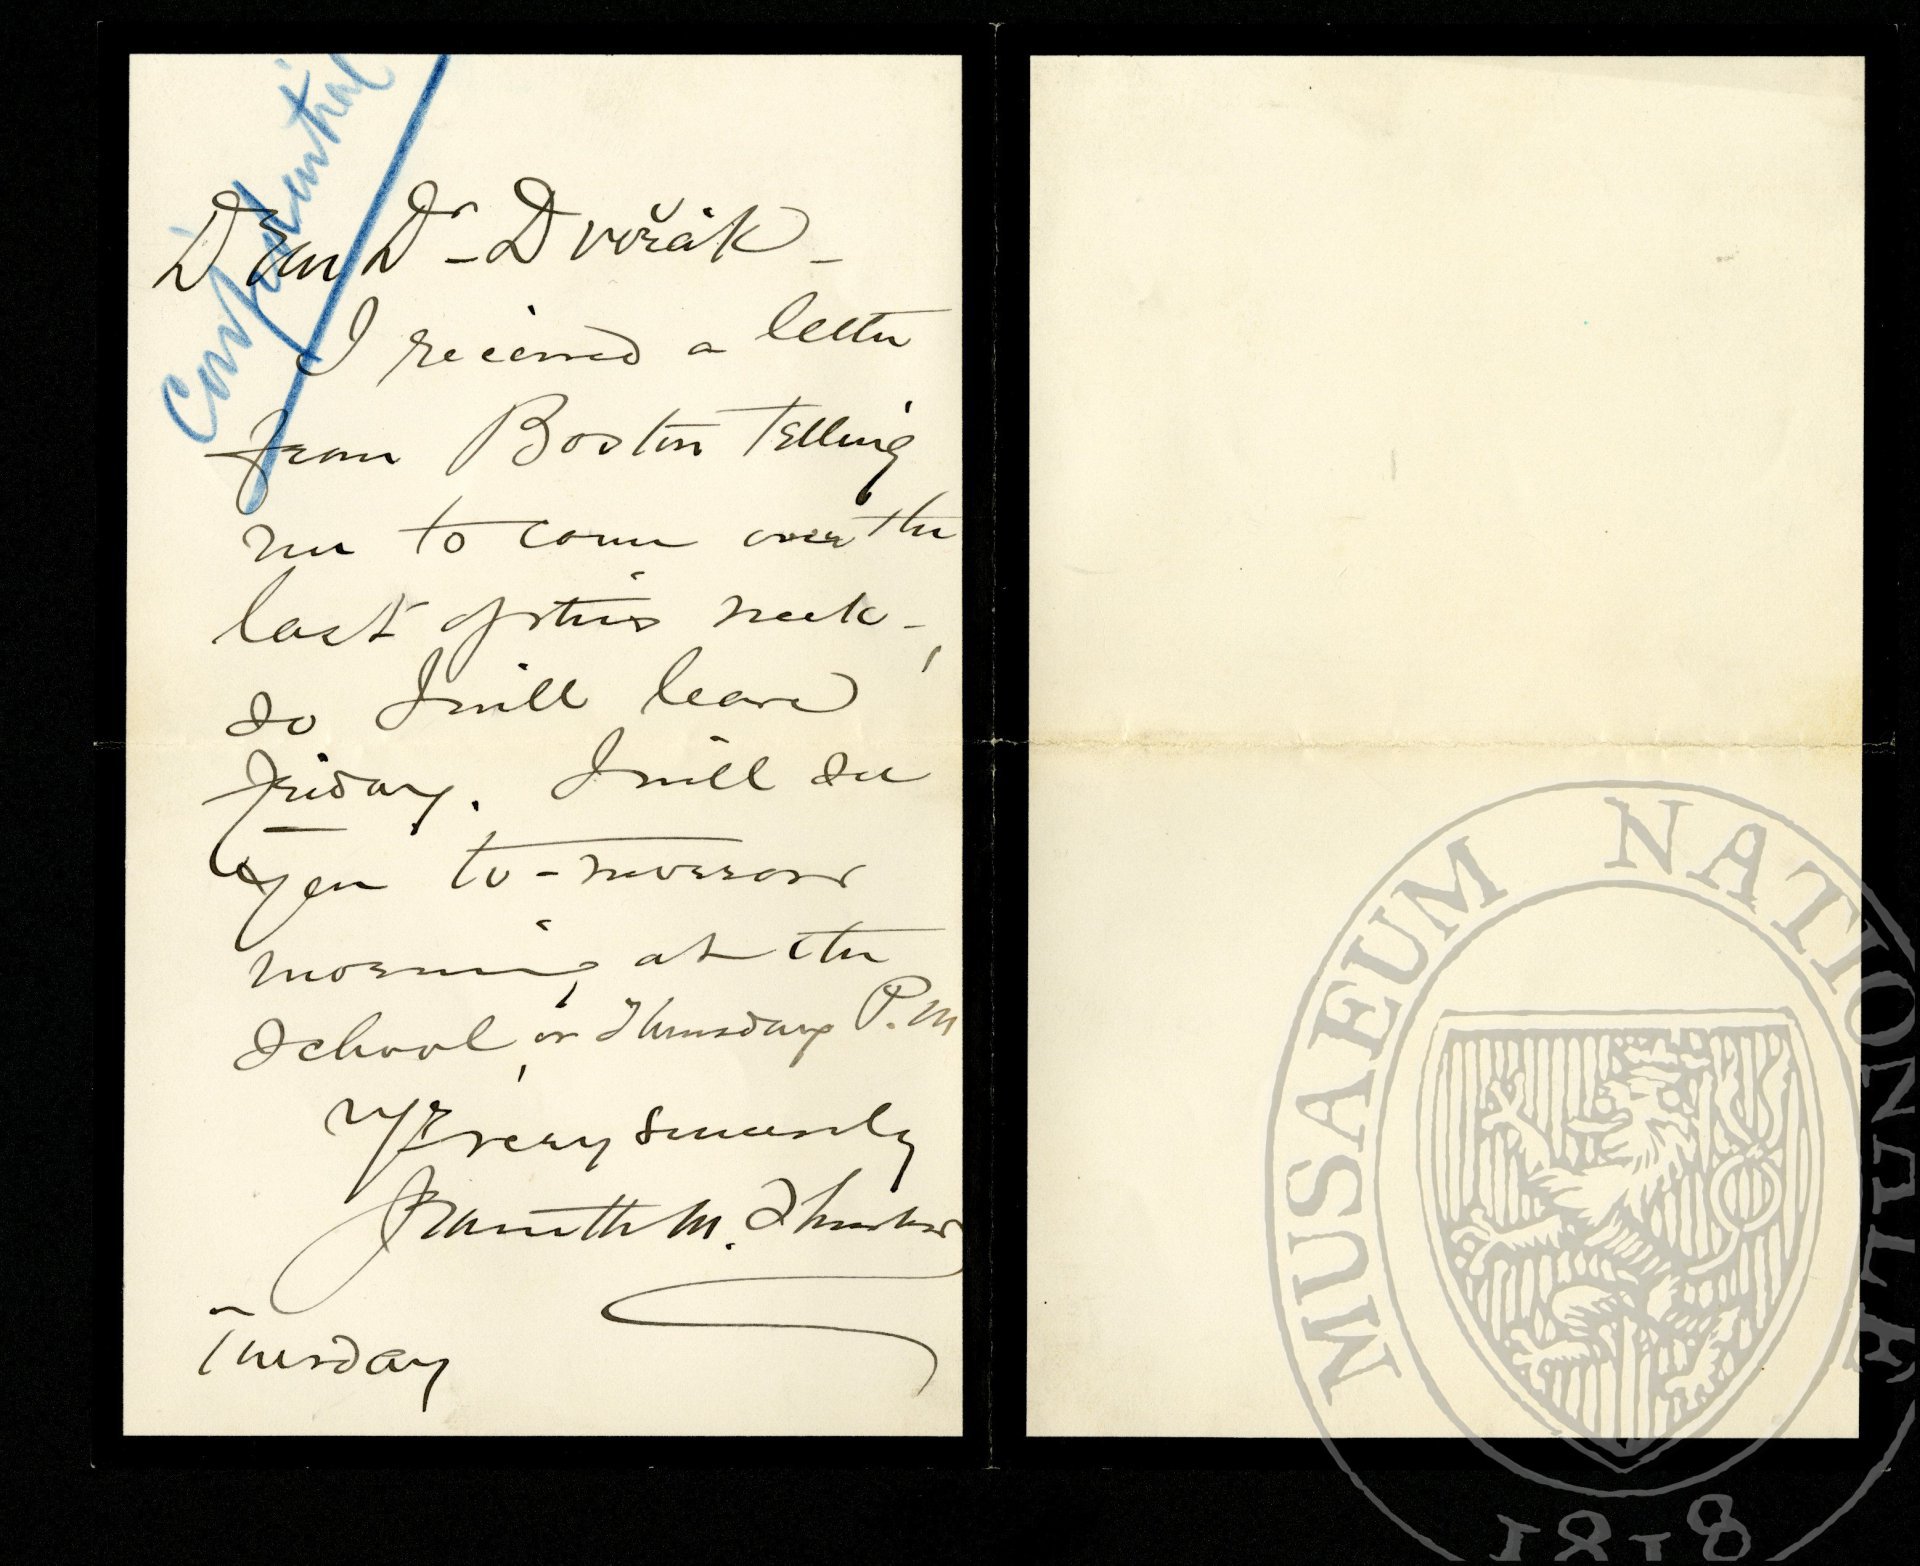 Confidential
Dear Dr - Dvořák -
I received a letter
from Boston telling
me to come over the
last of this week -,
so I will leave
Friday. I will see
you to-morrow
morning at the
school, or Thursday P.M
very sincerely
Jeannette M. Thurber
Tuesday
MUSAEUM NATIONALE
1818